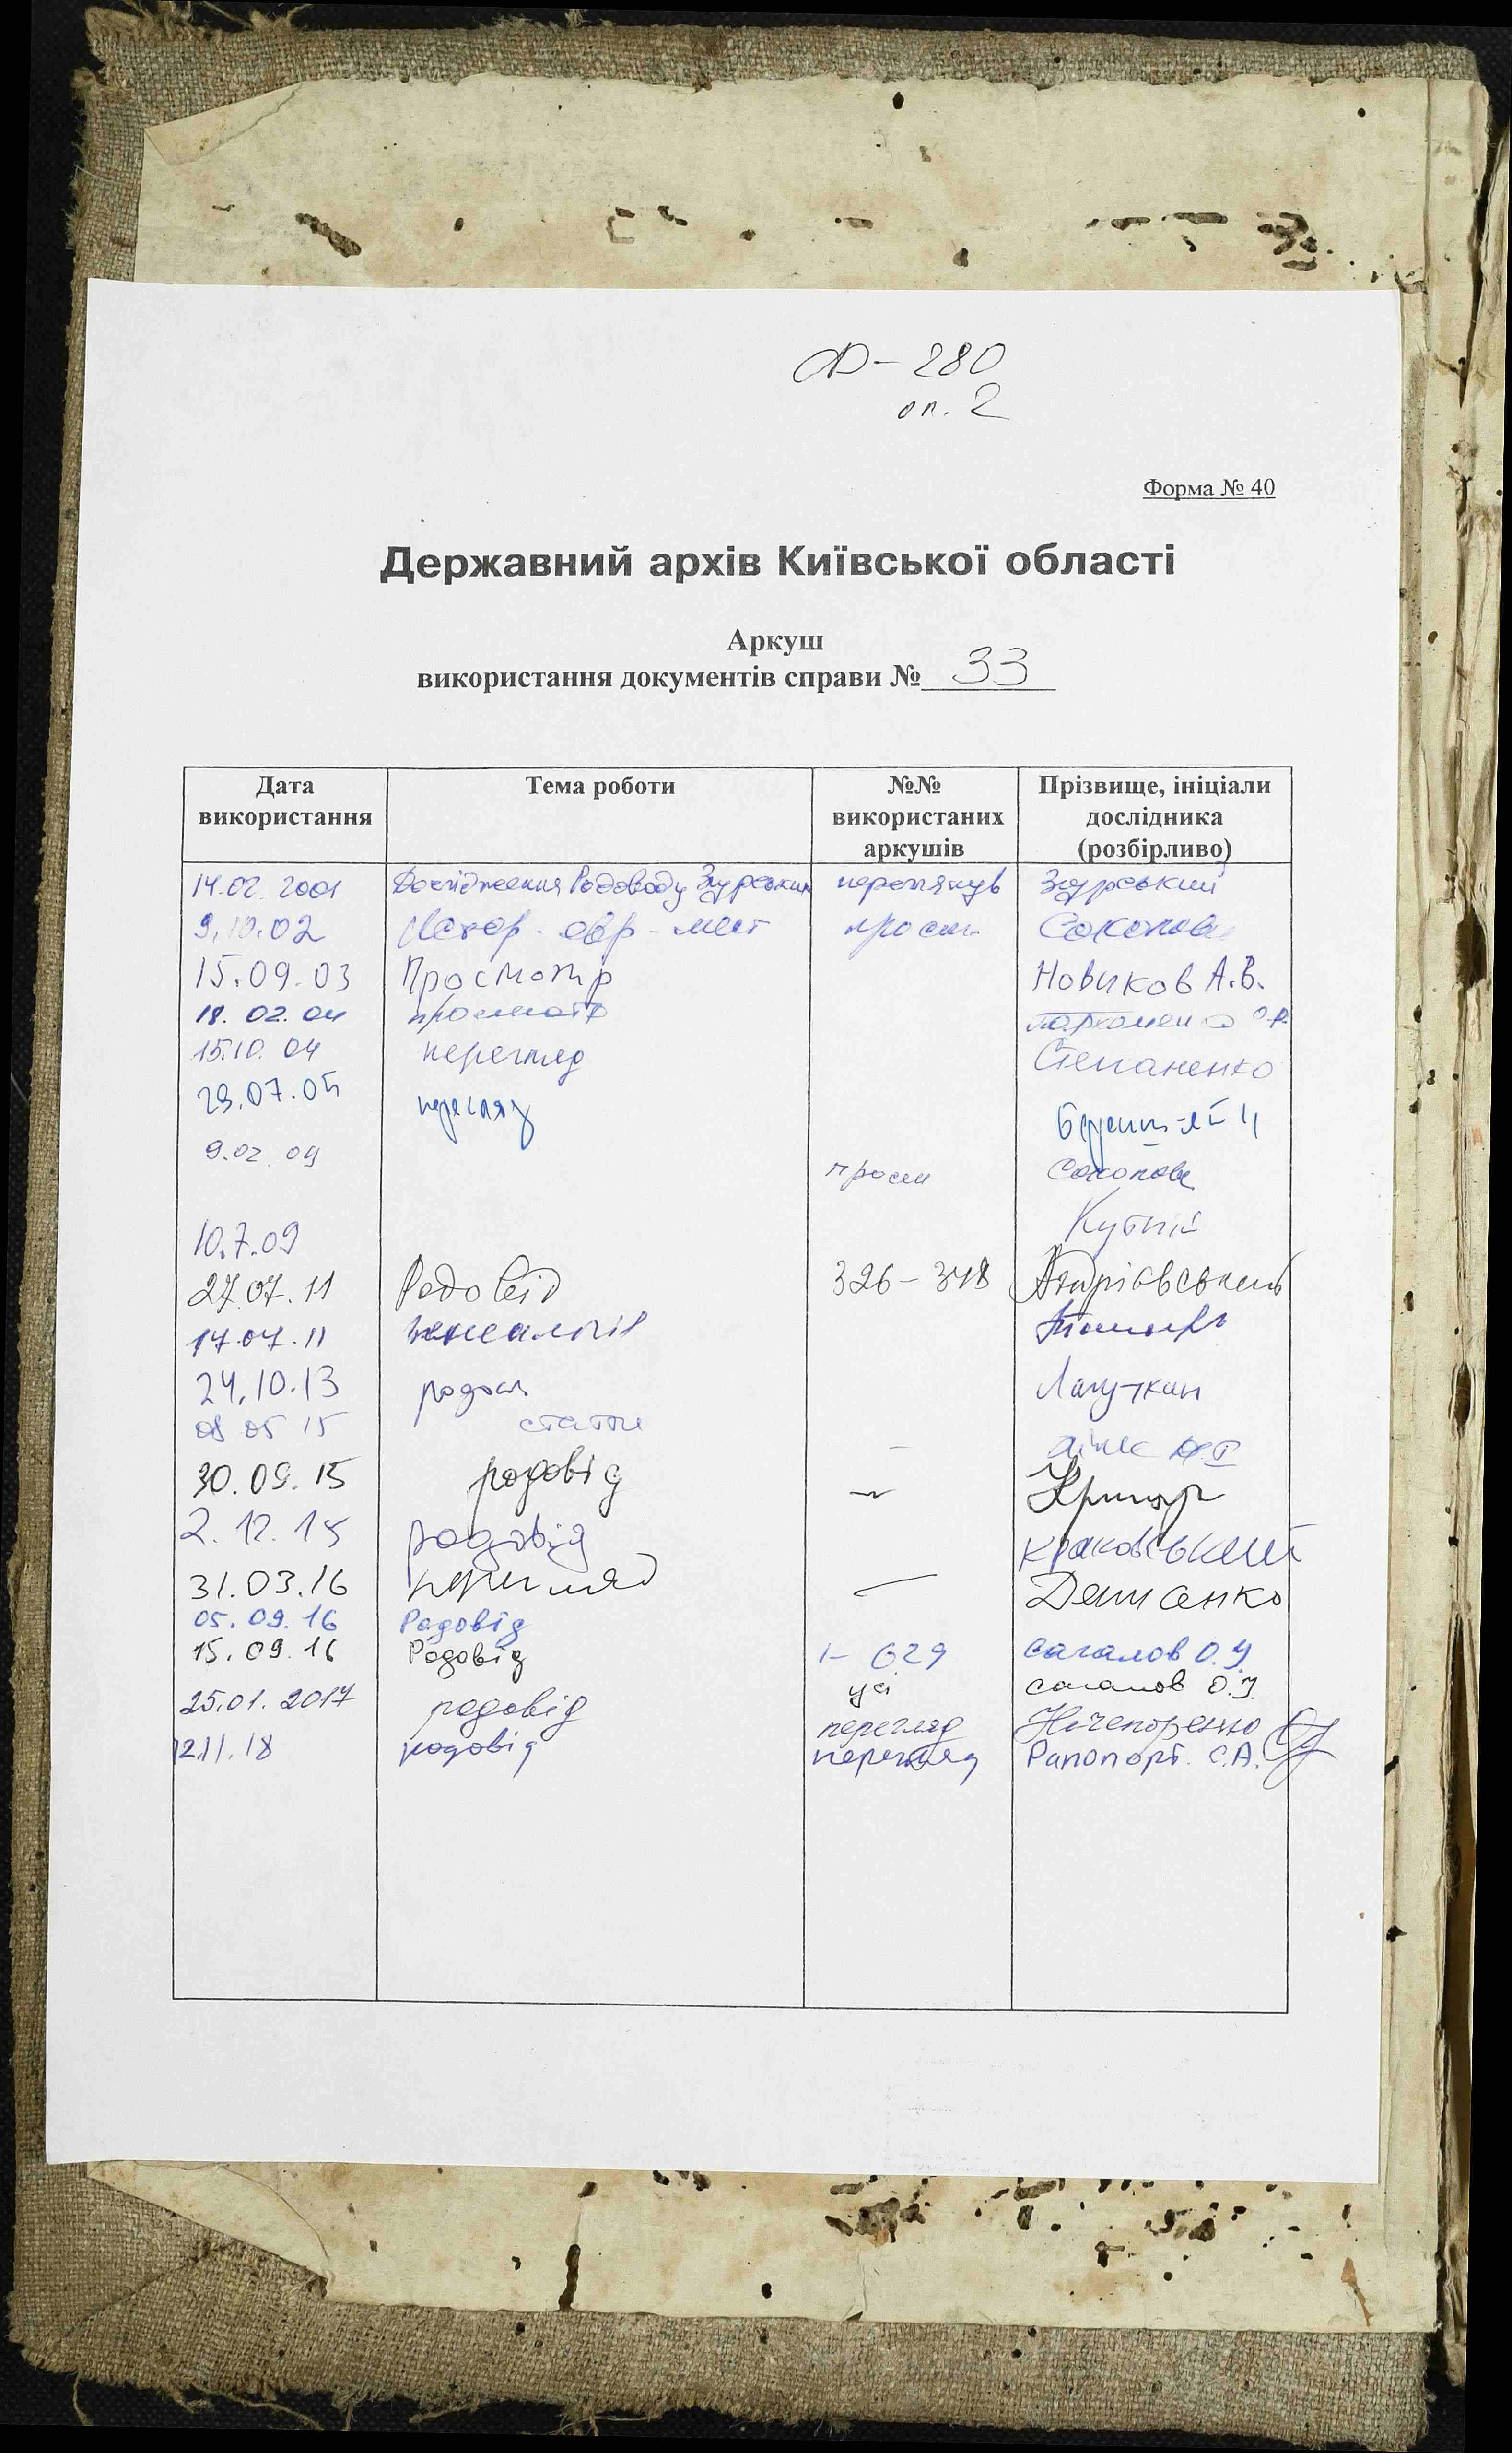 Ф-280
оп. 2
Форма № 40
Державний архів Київської області
Аркуш
використання документів справи № 33
Дата використання Тема роботи №№ використаних аркушів Прізвище, ініціали дослідника (розбірливо)
14.02.2001 Дослідження Родоводу Згурських переглянув Згурський
9.10.02 просм Соколова
15.09.03 Просмотр Новиков А.В.
18.02.04 просмотр Пархоменко
15.10.04 перегляд Степаненко
29.07.05 перегляд
9.02.09 просм Соколова
10.7.09 Кутній
27.07.11 Родовід 326-348 Андріевський
генеалогія
24.10.13
08 05 15 статти
30.09.15 родовід
2.12.15 родовід Краковський
31.03.16 перегляд
05.09.16 Родовід 1-629 Сагалов О.У.
15.09.16 Родовід усі Сагалов О.У.
25.01.2017 родовід перегляд Нечепоренко
12.11.18 родовід перегляд Рапопорт. С.А.